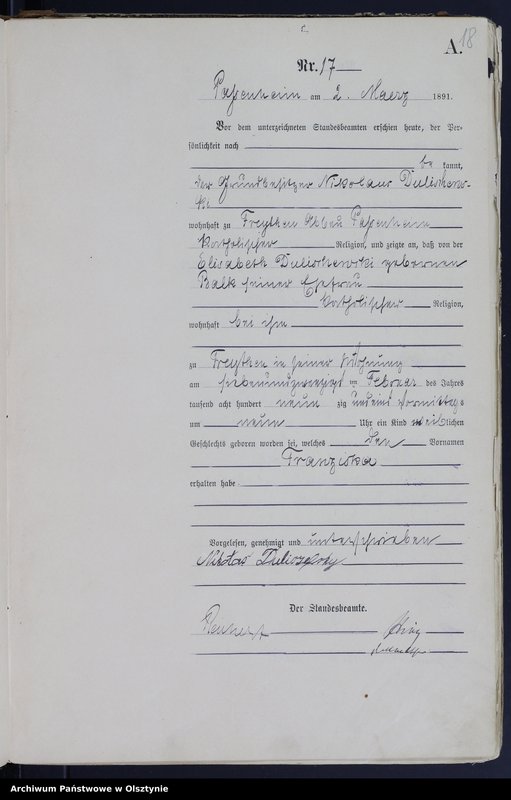 A. 18
Nr. 17
Passenheim am 2. Maerz 1891.
Vor dem unterzeichneten Standesbeamten erschien heute, der Per-
sönlichkeit nach
be kannt,
der Grundbesitzer Nikolaus Dulischews-
ki
wohnhaft zu Freythen Abbau Passenheim
katholischer Religion, und zeigte an, daß von der
Elisabeth Dulischewski geborenen
Balk seiner Ehefrau
katholischer Religion,
wohnhaft bei ihm
zu Freythen in seiner Wohnung
am siebenundzwanzigst en Februar des Jahres
tausend acht hundert neun zig und eins Vormittags
um neun Uhr ein Kind weiblichen
Geschlechts geboren worden sei, welches den Vornamen
Franziska
erhalten habe
Vorgelesen, genehmigt und unterschrieben
Der Standesbeamte.
Archiwum Państwowe w Olsztynie